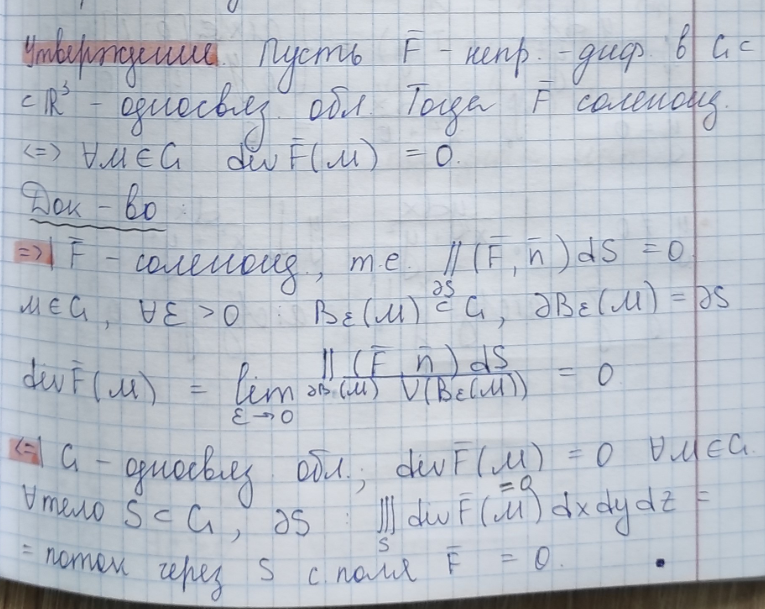 Утверждение. Пусть F̄ - непр. - диф. в G ⊂
⊂ ℝ³ - односвяз. обл. Тогда F̄ соленоид.
<=> ∀M ∈ G div F̄(M) = 0.
Док - во:
=>| F̄ - соленоид., т.е. ∬_∂S (F̄, n̄) dS = 0
M ∈ G, ∀ε > 0 : Bε(M) ⊂ G, ∂Bε(M) = ∂S
div F̄(M) = lim_{ε→0} ∬_∂B(M) (F̄, n̄) dS / V(Bε(M)) = 0
<=| G - односвяз. обл., div F̄(M) = 0 ∀M ∈ G.
∀ тело S ⊂ G, ∂S : ∭_S div F̄(M) =0 dx dy dz =
= поток через S с поля F̄ = 0.